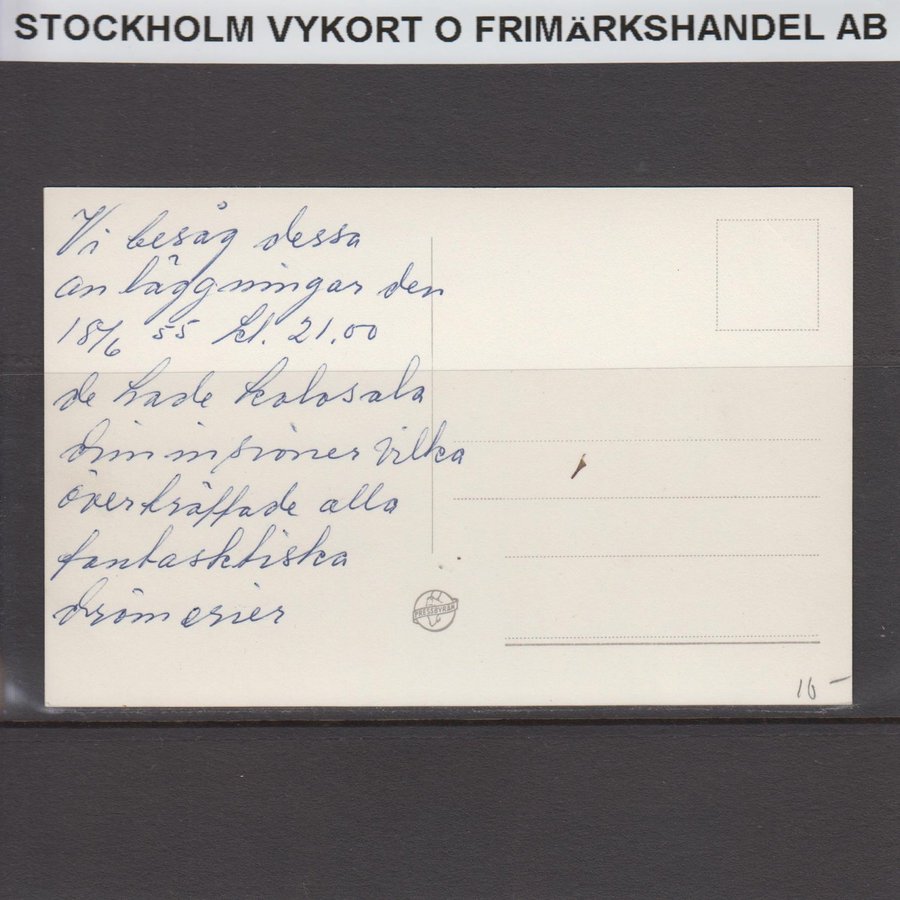 STOCKHOLM VYKORT O FRIMÄRKSHANDEL AB
Vi besåg dessa
anläggningar den
18/6 55 kl. 21.00
de hade kolosala
dimminsioner vilka
överträffade alla
fantasktiska
drömerier
PRESSBYRÅN
16 –